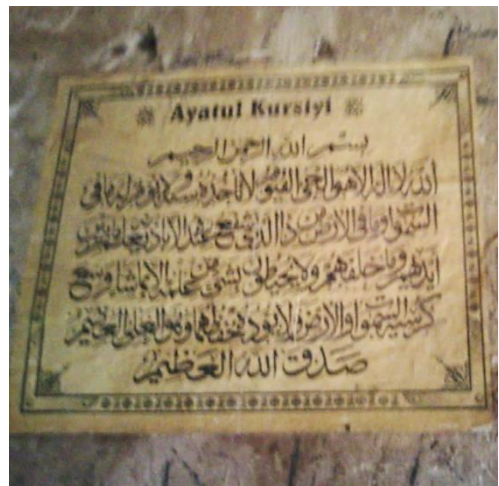 Ayatul Kursiyi
بسم الله الرحمن الرحيم
الله لا اله الا هو الحي القيوم لا تأخذه سنة ولا نوم له ما في
السموات وما في الارض من ذا الذي يشفع عنده الا باذنه يعلم ما بين
ايديهم وما خلفهم ولا يحيطون بشئ من علمه الا بما شاء وسع
كرسيه السموات والارض ولا يؤده حفظهما وهو العلي العظيم
صدق الله العظيم